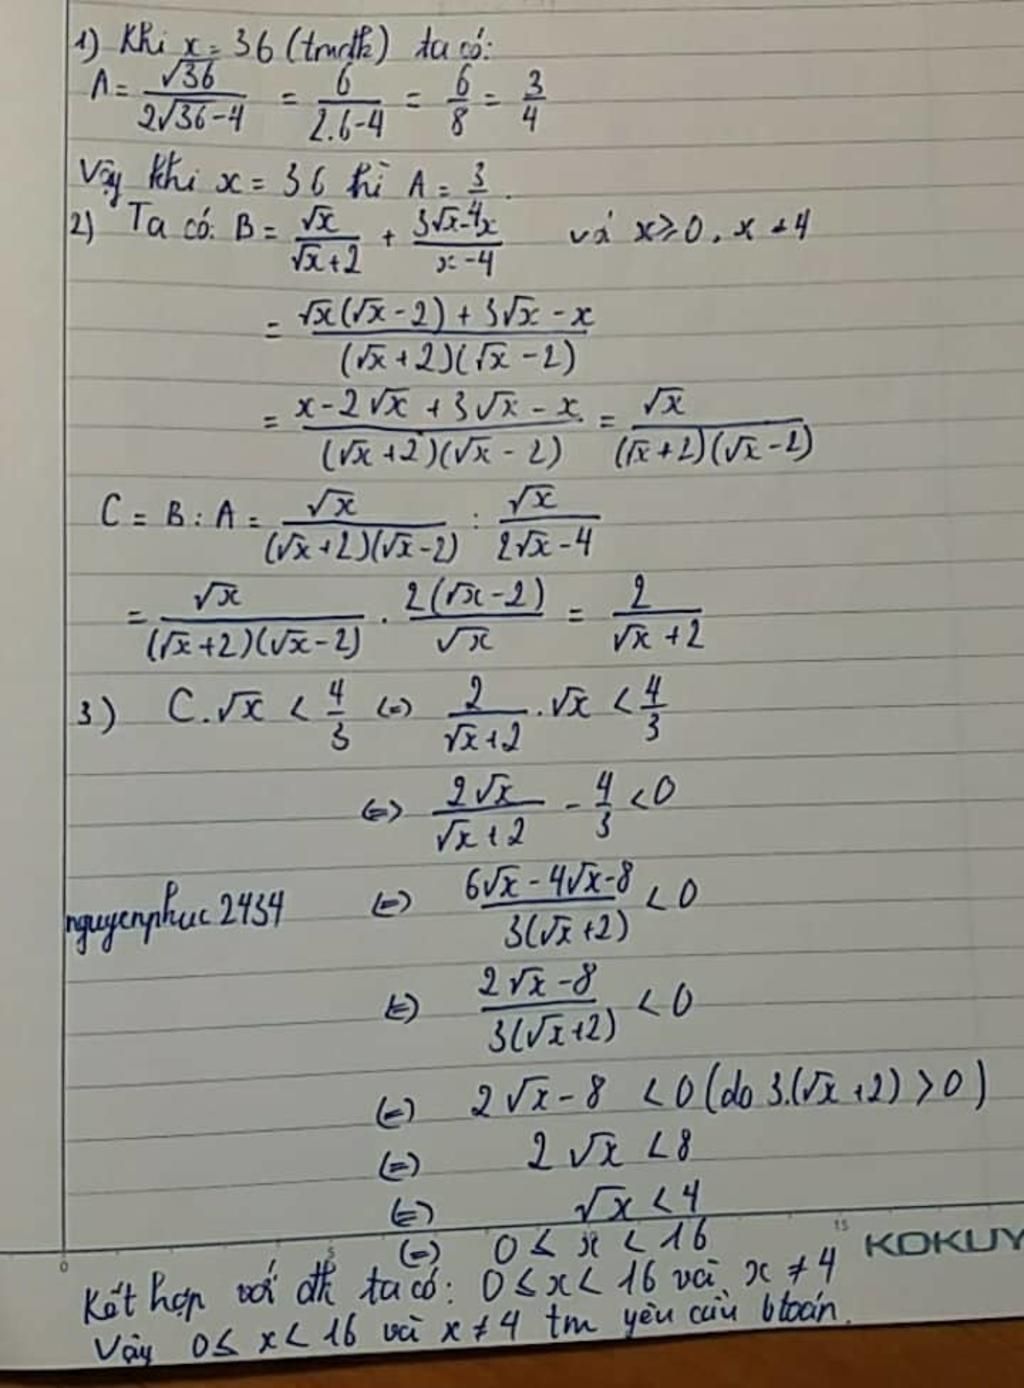 1) Khi x = 36 (tmđk) ta có:
A = √36 / (2√36-4) = 6 / (2.6-4) = 6/8 = 3/4
Vậy khi x = 36 thì A = 3/4.
2) Ta có: B = √x/(√x+2) + (3√x-x)/(x-4) và x ≥ 0, x ≠ 4
= (√x(√x-2) + 3√x - x) / ((√x+2)(√x-2))
= (x-2√x + 3√x - x) / ((√x+2)(√x-2)) = √x / ((√x+2)(√x-2))
C = B : A = √x / ((√x+2)(√x-2)) : √x / (2√x-4)
= √x / ((√x+2)(√x-2)) . 2(√x-2) / √x = 2 / (√x+2)
3) C.√x < 4/3 (=) 2/(√x+2) .√x < 4/3
(=) 2√x/(√x+2) - 4/3 < 0
nguyenphuc2434 (=) (6√x-4√x-8) / (3(√x+2)) < 0
(=) (2√x-8) / (3(√x+2)) < 0
(=) 2√x-8 < 0 (do 3.(√x+2) > 0)
(=) 2√x < 8
(=) √x < 4
(=) 0 ≤ x < 16
0 5 15 KOKUY
Kết hợp với đk ta có: 0 ≤ x < 16 và x ≠ 4
Vậy 0 ≤ x < 16 và x ≠ 4 tm yêu cầu btoán.